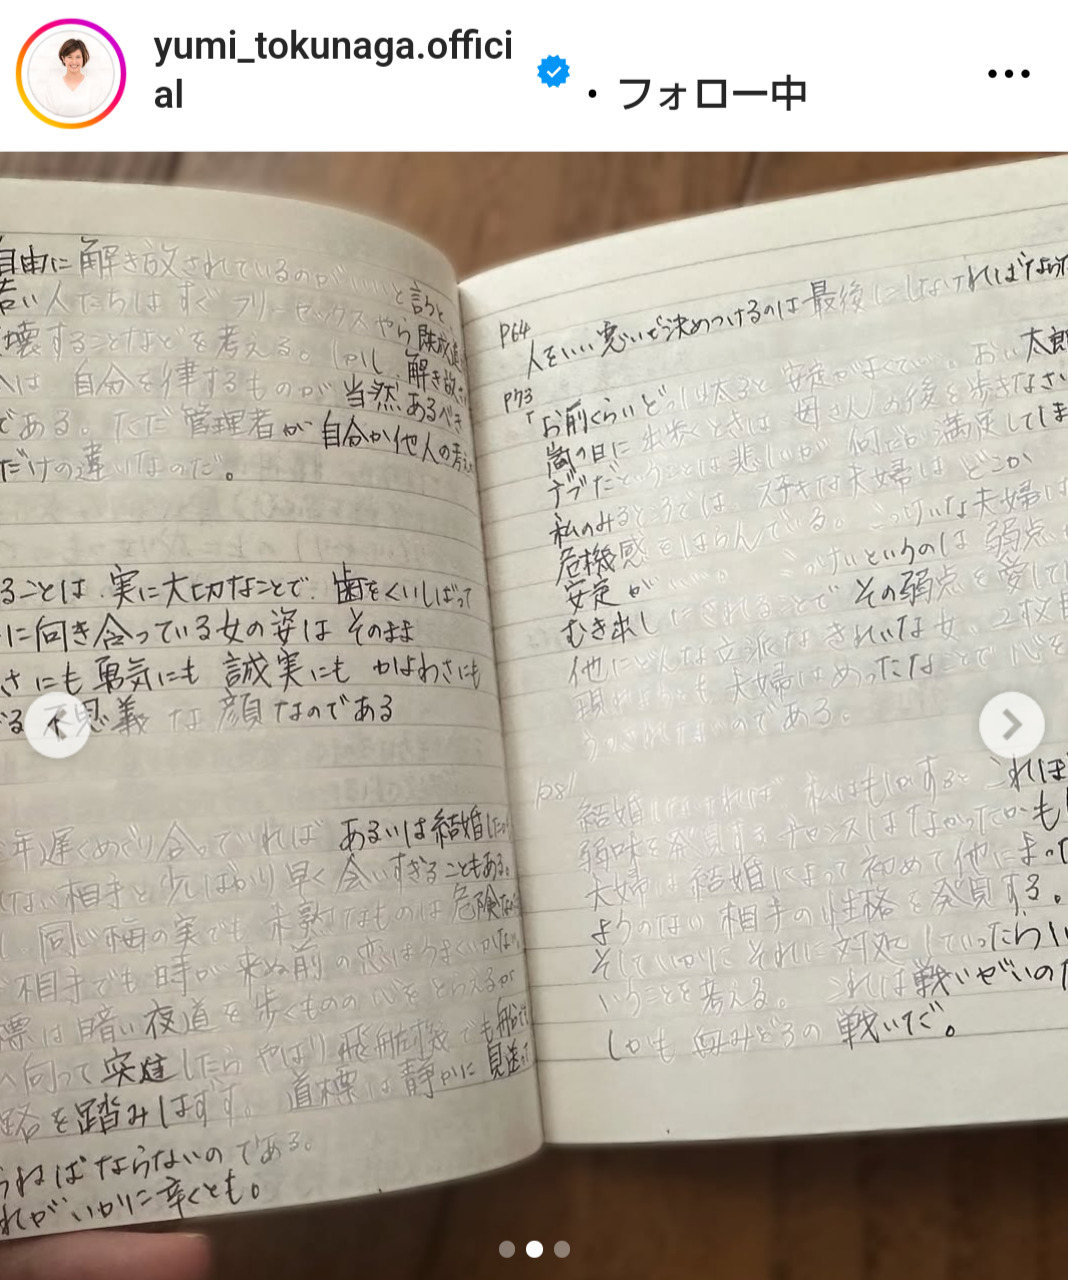 yumi_tokunaga.offici
al
・フォロー中
自由に解き放されているのがいいと言うと
若い人たちはすぐフリーセックスやら既成道
壊することなどを考える。しかし、解き放さ
は 自分を律するものが当然あるべき
である。ただ管理者が、自分か他人の考え
だけの違いなのだ。
ることは、実に大切なことで、歯をくいしばって
に向き合っている女の姿は そのまま
さにも勇気にも 誠実にも かよわさにも
る 不思議な顔なのである
年遅くめぐり合っていれば あるいは結婚した
ない相手と少しばかり早く会いすぎることもある。
同じ梅の実でも未熟なものは危険な
相手でも時が来ぬ前の恋はうまくいかない
標は暗い夜道を歩くものの心をとらえるが
向って突進したら やはり飛行機でも船でも
路を踏みはずす。道標は静かに見送って
らねばならないのである。
れがいかに辛くとも。
P64
人をいい悪いと決めつけるのは最後にしなければならな
P73
「お前くらいどっしり太ると 安定がよくていい。おい太郎
嵐の日に出歩くときは 母さんの後を歩きなさい
デブだということは悲しいが 何だか満足してしま
私のみるところでは、ステキな夫婦はどこか
危機感をはらんでいる。こっけいな夫婦は
安定がいい。こっけいというのは弱点
むき出しにされることで その弱点を愛して
他にどんな立派な きれいな女、2枚目
現れようとも 夫婦はめったなことで心を
うつされないのである。
P81
結婚しなければ、私はもしかすると これほ
弱味を発見するチャンスはなかったかも
夫婦は結婚によって初めて他にまった
ようのない相手の性格を発見する。
そしていかにそれに対処していったらい
いうことを考える。これは戦いぜいの
しかも 血みどろの戦いだ。